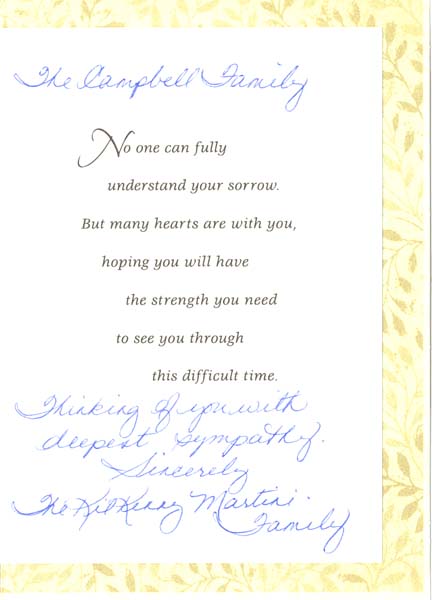 The Campbell Family
No one can fully
understand your sorrow.
But many hearts are with you,
hoping you will have
the strength you need
to see you through
this difficult time.
Thinking of you with
deepest sympathy.
Sincerely
The KilKenny Martini
Family